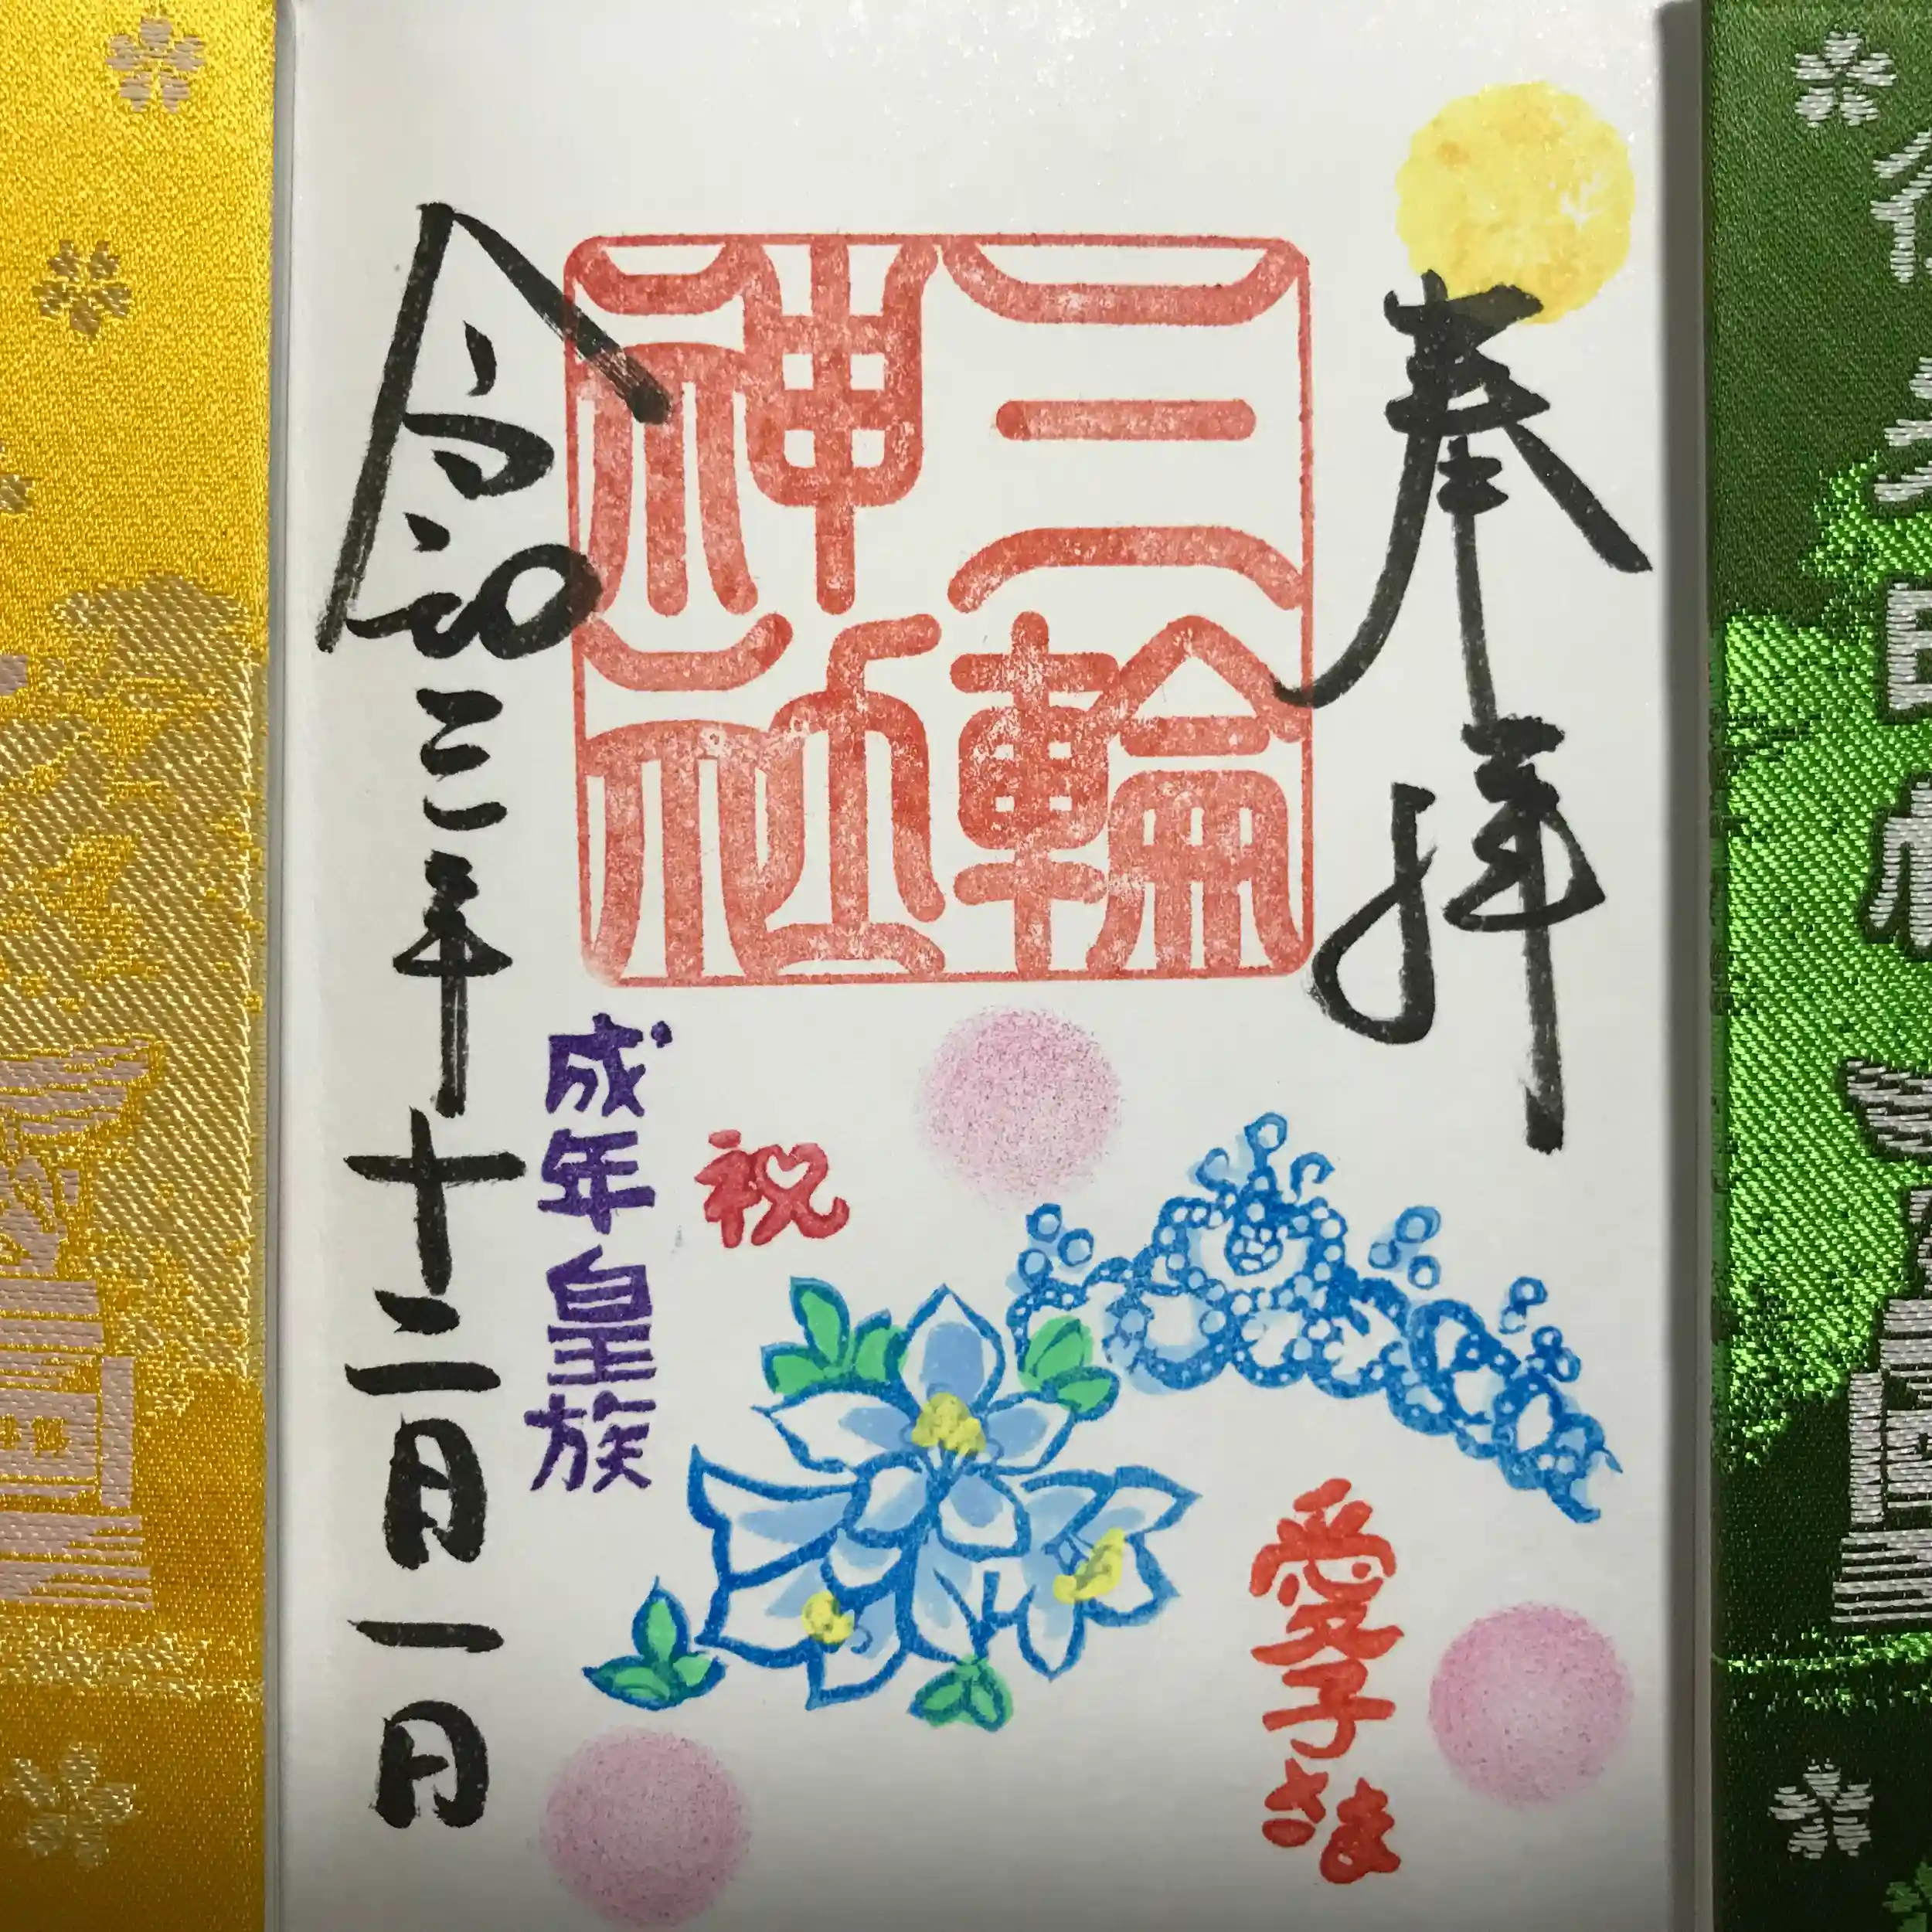 奉拝
三輪
神社
愛子さま
祝
成年皇族
令和三年十二月一日